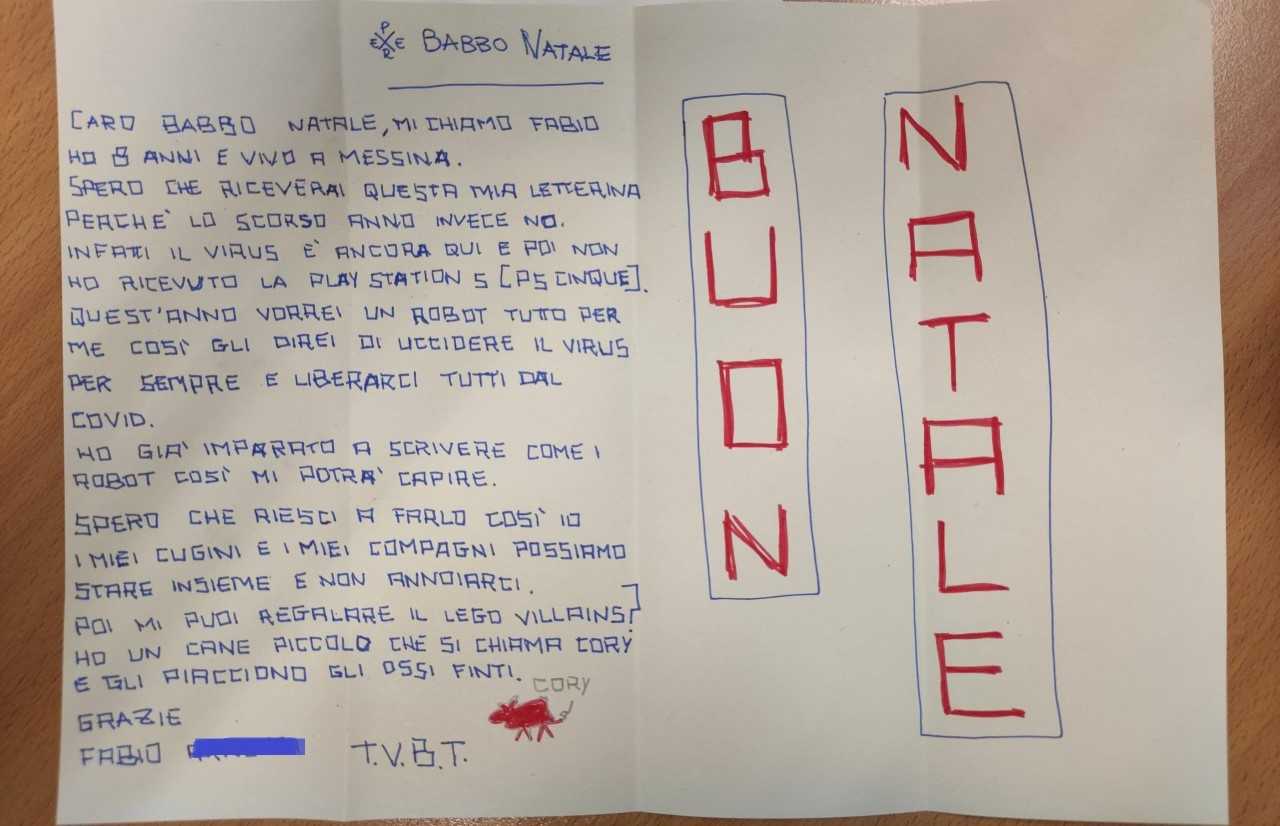 PER BABBO NATALE
CARO BABBO NATALE, MI CHIAMO FABIO
HO 8 ANNI E VIVO A MESSINA.
SPERO CHE RICEVERAI QUESTA MIA LETTERINA
PERCHE' LO SCORSO ANNO INVECE NO.
INFATTI IL VIRUS E' ANCORA QUI E POI NON
HO RICEVUTO LA PLAY STATION 5 [PS CINQUE].
QUEST'ANNO VORREI UN ROBOT TUTTO PER
ME COSI' GLI DIREI DI UCCIDERE IL VIRUS
PER SEMPRE E LIBERARCI TUTTI DAL
COVID.
HO GIA' IMPARATO A SCRIVERE COME I
ROBOT COSI' MI POTRA' CAPIRE.
SPERO CHE RIESCI A FARLO COSI' IO
I MIEI CUGINI E I MIEI COMPAGNI POSSIAMO
STARE INSIEME E NON ANNOIARCI.
POI MI PUOI REGALARE IL LEGO VILLAINS?
HO UN CANE PICCOLO CHE SI CHIAMA CORY
E GLI PIACCIONO GLI OSSI FINTI.
CORY
GRAZIE
FABIO
T.V.B.T.
BUON
NATALE